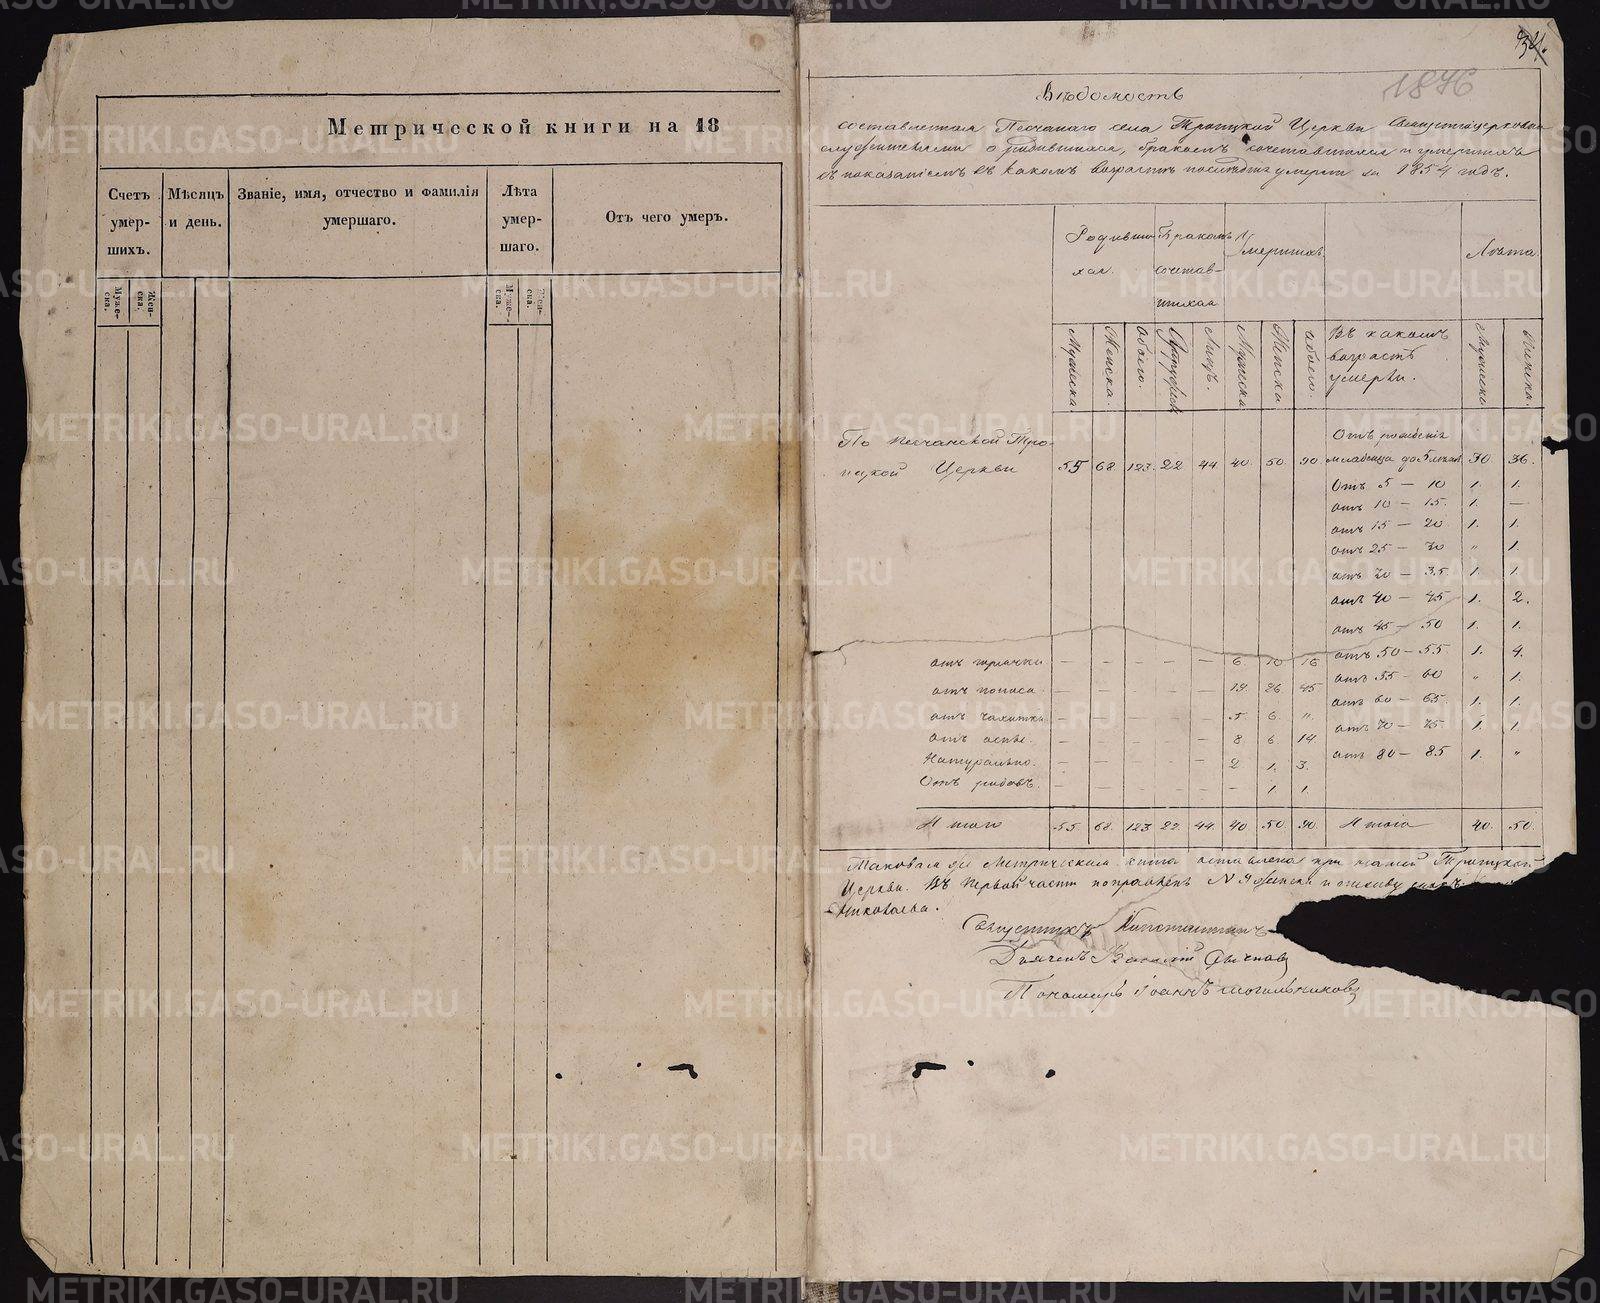 Метрической книги на 18
Счетъ умер- шихъ.
Мѣсяцъ и день.
Званіе, имя, отчество и фамилія умершаго.
Лѣта умер- шаго.
Отъ чего умеръ.
Муже- ска.
Жен- ска.
Муже- ска.
Жен- ска.
34.
1876
Вѣдомость
составленная Песчанаго села Троицкой Церкви Священноцерковно
служителями о родившихся, бракомъ сочетавшихся и умершихъ
съ показаніемъ въ какомъ возрастѣ послѣдніе умерли за 1854 годъ.
Родивши хся.
Бракомъ сочетав- шихся
Умершихъ.
Лѣта.
Мужеска
Женска.
Обоего.
Супружеств
Лицъ.
Мужеска
Женска
обоего.
Въ какомъ возрастѣ умерли.
Мужеска
Женска.
По Песчанской Тро-
ицкой Церкви 55 68. 123. 22 44 40. 50. 90
Отъ рожденія
младенца до 5 лѣтъ 30. 36.
Отъ 5 — 10 1. 1.
отъ 10 — 15. 1. —
отъ 15 — 20 1. 1.
отъ 25 — 30 " 1.
отъ 30 — 35. 1. 1.
отъ 40 — 45 1. 2.
отъ 45 — 50 1. 1.
отъ 50 — 55. 1. 4.
отъ 55 — 60 " 1.
отъ 60 — 65. 1. 1.
отъ 70 — 75 1. 1.
отъ 80 — 85 1. "
отъ горячки — — — — — 6. 10 16
отъ поноса. — — — — — 19. 26. 45
отъ чахотки — — — — — 5 6. 11.
отъ оспы. — — — — — 8 6. 14
Натурально. — — — — — 2 1. 3.
Отъ родовъ. — — — — — — 1 1.
Итого 55. 68. 123 22. 44. 40 50. 90. Итого 40. 50.
Таковая же Метрическая книга оставлена при нашей Троицкой
Церкви. Въ первой части поправленъ N 9 женски
Николаева.
Священникъ Константинъ
Дьячекъ Василій
Пономарь Іоаннъ Могильниковъ
METRIKI.GASO-URAL.RU